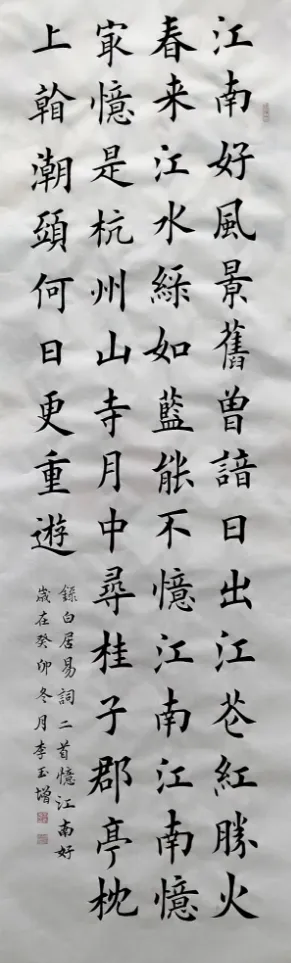 江南好風景舊曾諳日出江花紅勝火
春来江水綠如藍能不憶江南江南憶
㝡憶是杭州山寺月中尋桂子郡亭枕
上看潮頭何日更重遊
錄白居易詞二首憶江南好
歲在癸卯冬月李玉增